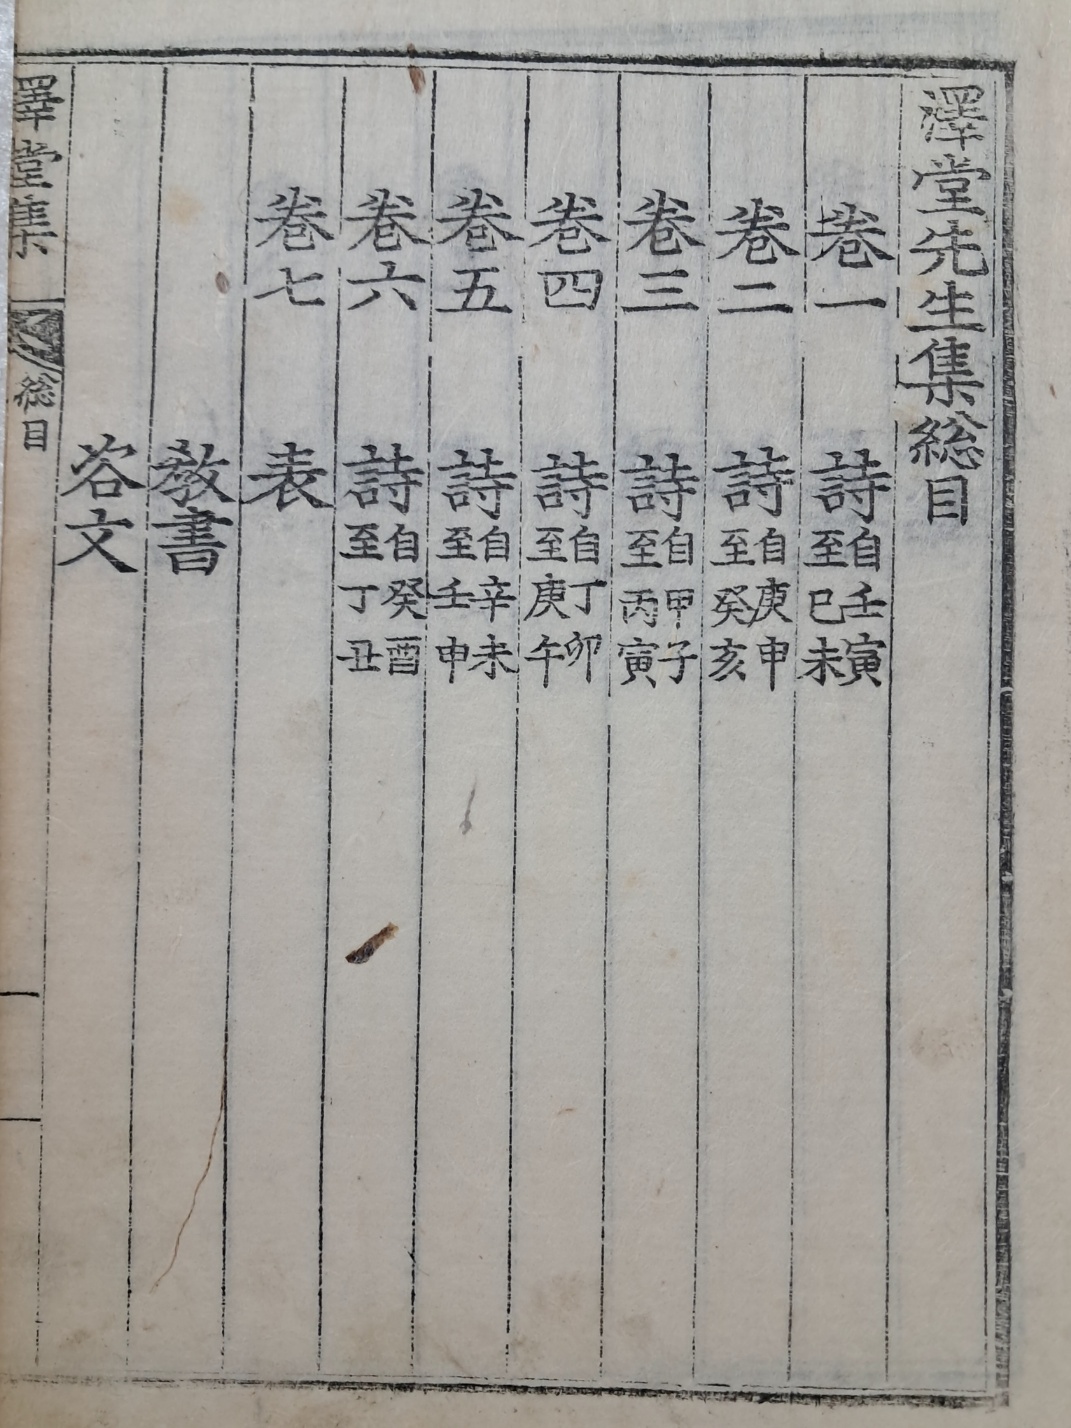 澤堂先生集総目
卷一 詩 自壬寅
至己未
卷二 詩 自庚申
至癸亥
卷三 詩 自甲子
至丙寅
卷四 詩 自丁卯
至庚午
卷五 詩 自辛未
至壬申
卷六 詩 自癸酉
至丁丑
卷七 表
教書
咨文
澤堂集 総目